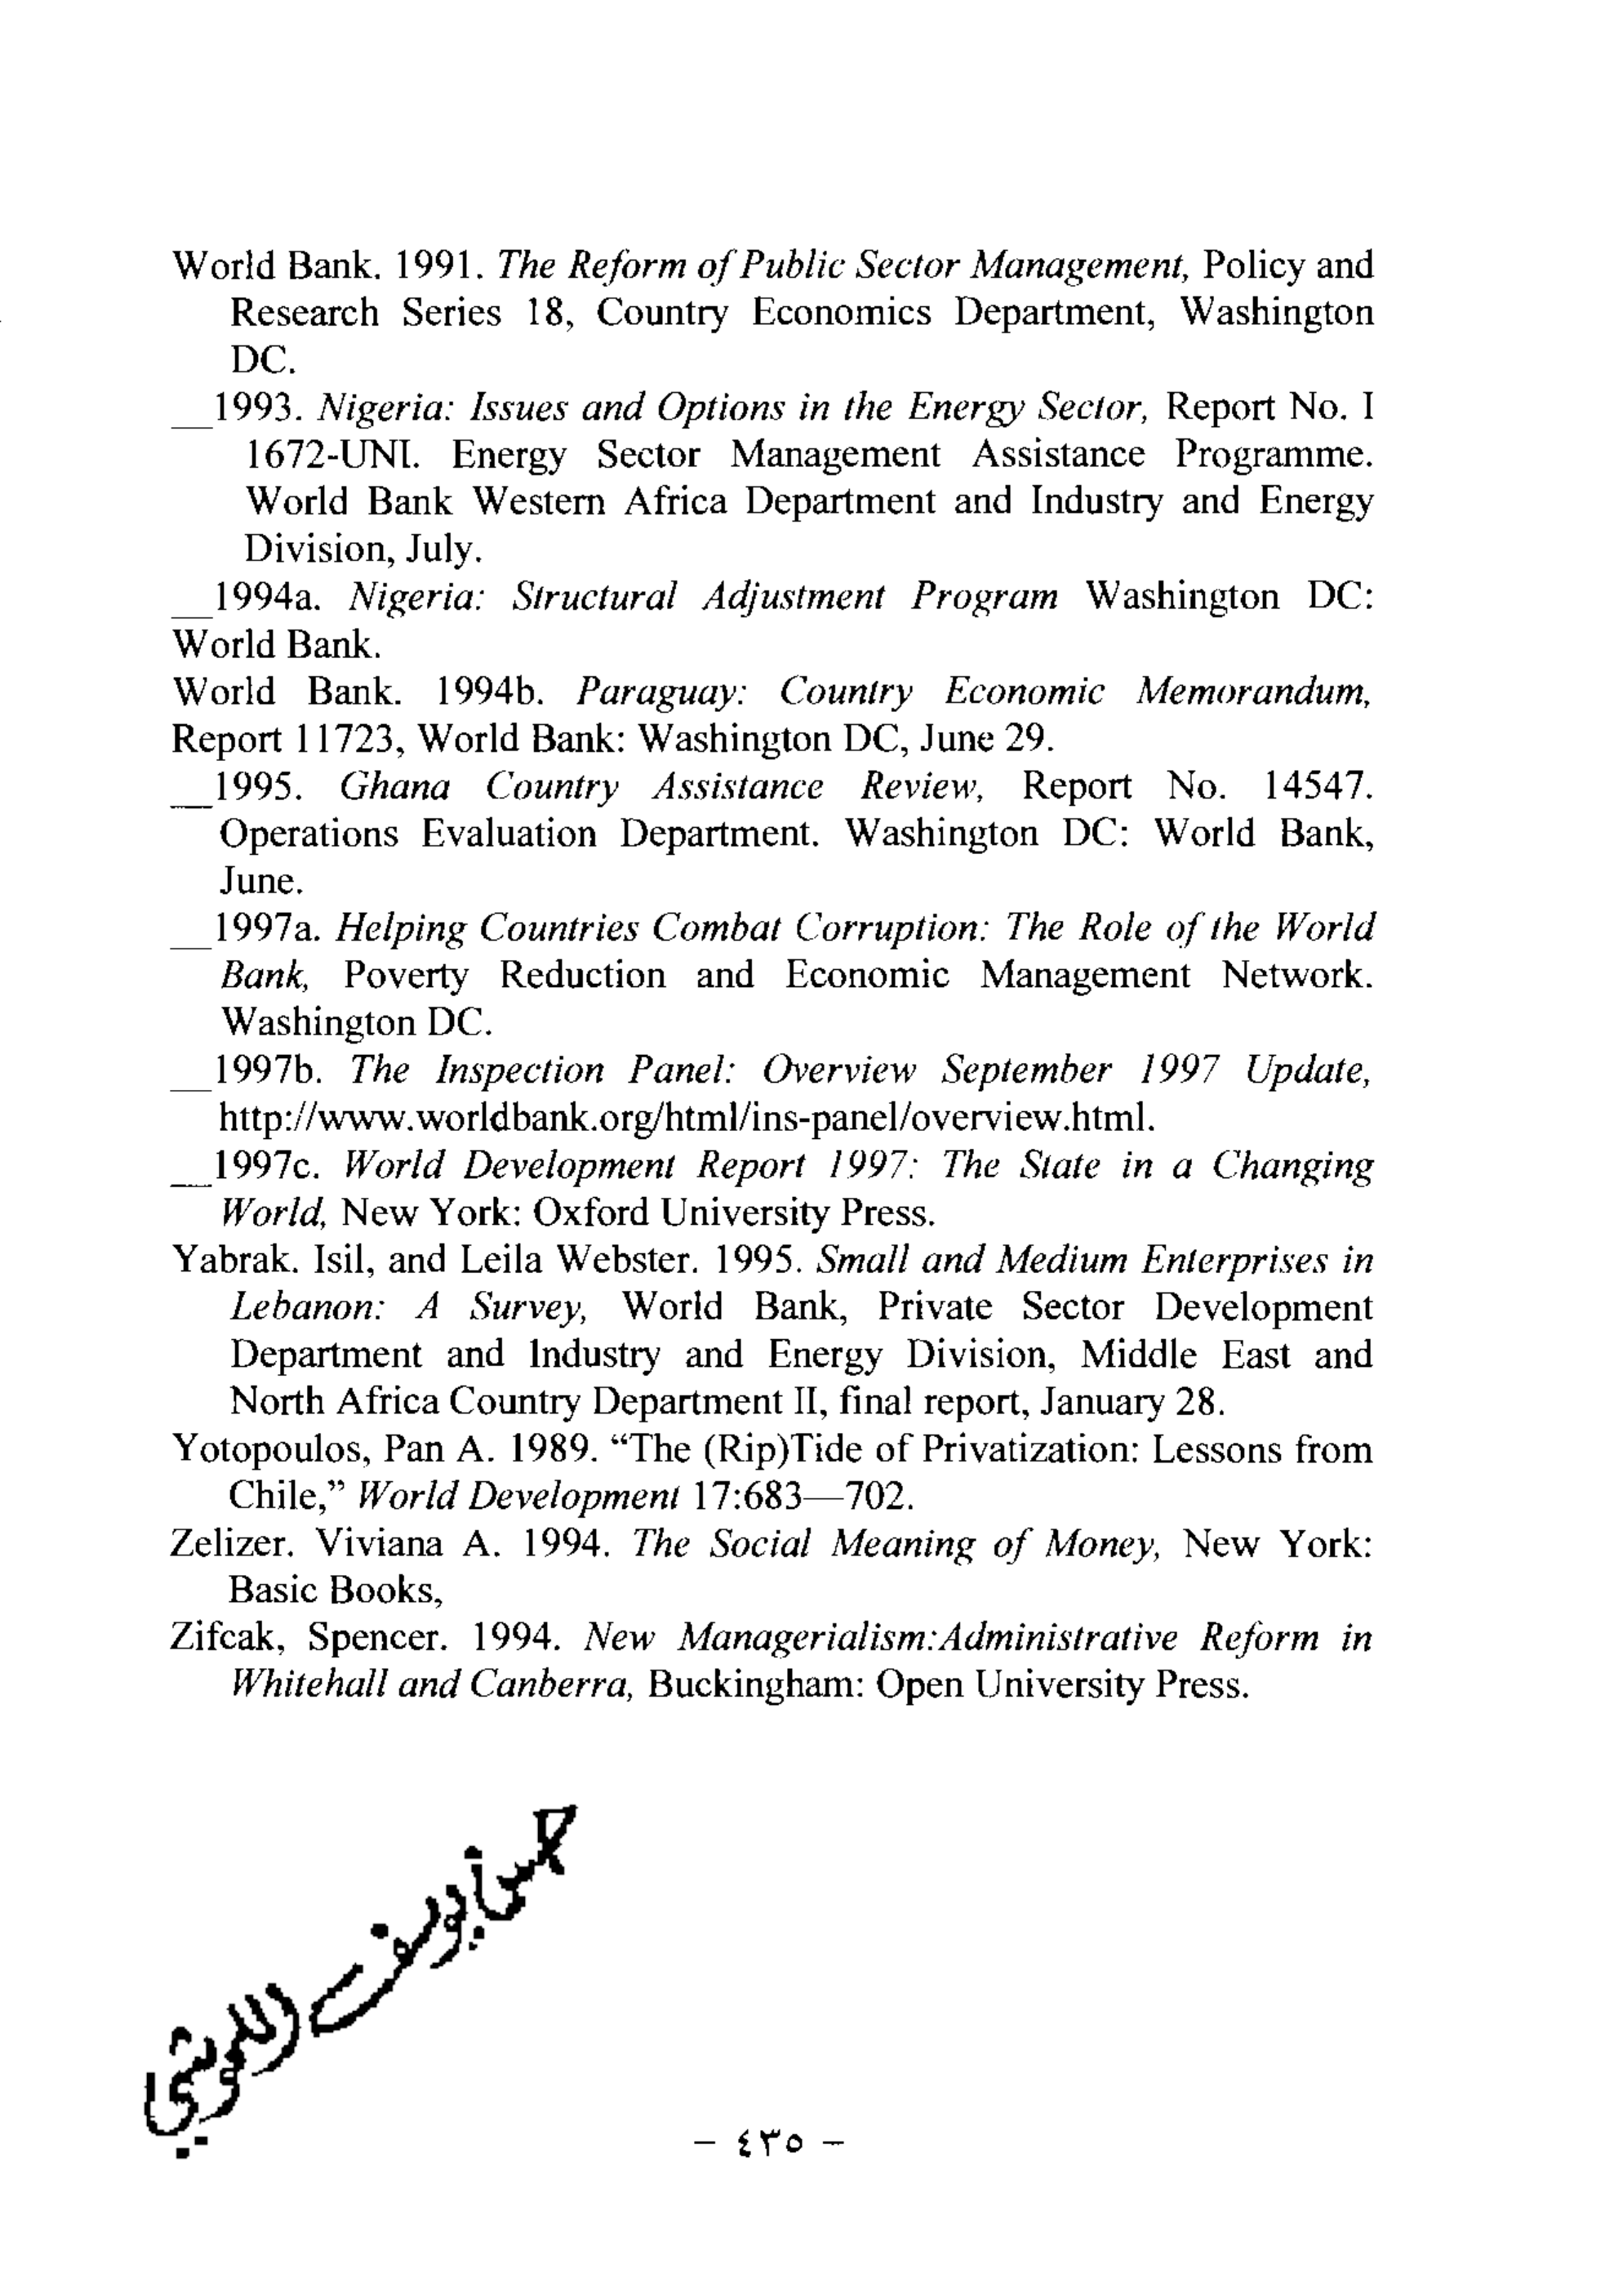 World Bank. 1991. The Reform of Public Sector Management, Policy and
Research Series 18, Country Economics Department, Washington
DC.
__1993. Nigeria: Issues and Options in the Energy Sector, Report No. I
1672-UNI. Energy Sector Management Assistance Programme.
World Bank Western Africa Department and Industry and Energy
Division, July.
__1994a. Nigeria: Structural Adjustment Program Washington DC:
World Bank.
World Bank. 1994b. Paraguay: Country Economic Memorandum,
Report 11723, World Bank: Washington DC, June 29.
__1995. Ghana Country Assistance Review, Report No. 14547.
Operations Evaluation Department. Washington DC: World Bank,
June.
__1997a. Helping Countries Combat Corruption: The Role of the World
Bank, Poverty Reduction and Economic Management Network.
Washington DC.
__1997b. The Inspection Panel: Overview September 1997 Update,
http://www.worldbank.org/html/ins-panel/overview.html.
__1997c. World Development Report 1997: The State in a Changing
World, New York: Oxford University Press.
Yabrak. Isil, and Leila Webster. 1995. Small and Medium Enterprises in
Lebanon: A Survey, World Bank, Private Sector Development
Department and Industry and Energy Division, Middle East and
North Africa Country Department II, final report, January 28.
Yotopoulos, Pan A. 1989. “The (Rip)Tide of Privatization: Lessons from
Chile,” World Development 17:683—702.
Zelizer. Viviana A. 1994. The Social Meaning of Money, New York:
Basic Books,
Zifcak, Spencer. 1994. New Managerialism:Administrative Reform in
Whitehall and Canberra, Buckingham: Open University Press.
– ٤٣٥ –